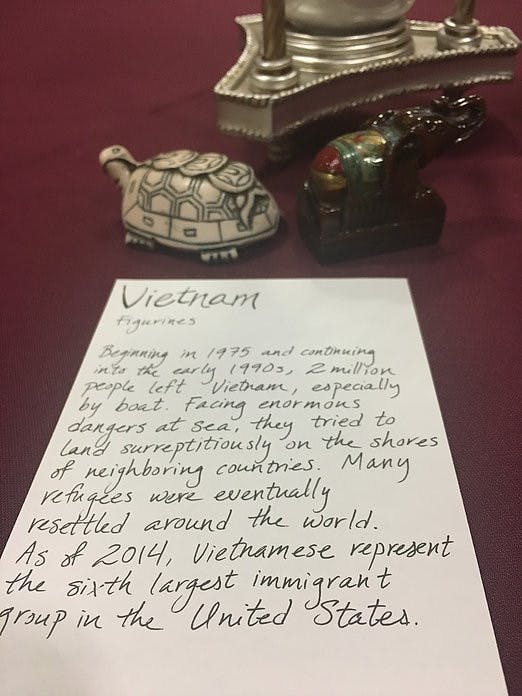 Vietnam
Figurines
Beginning in 1975 and continuing
into the early 1990s, 2 million
people left Vietnam, especially
by boat. Facing enormous
dangers at sea, they tried to
land surreptitiously on the shores
of neighboring countries. Many
refugees were eventually
resettled around the world.
As of 2014, Vietnamese represent
the sixth largest immigrant
group in the United States.